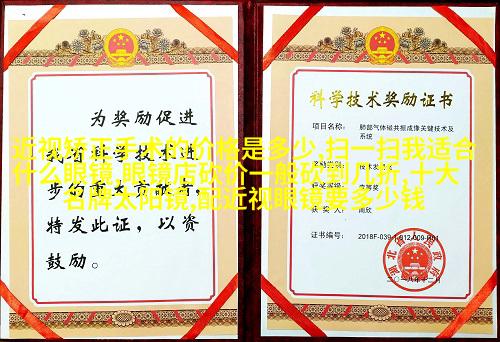 为奖励促进
我省科学技术进
步的重大贡献者，
特发此证，以资
鼓励。
科学技术奖励证书
项目名称：肺部气体磁共振成像关键技术及
系统
奖励类别：
获奖人：
证书编号：
近视矫正手术的价格是多少,扫一扫我适合
什么眼镜,眼镜店砍价一般砍几折,十大
名牌太阳镜,配近视眼镜要多少钱